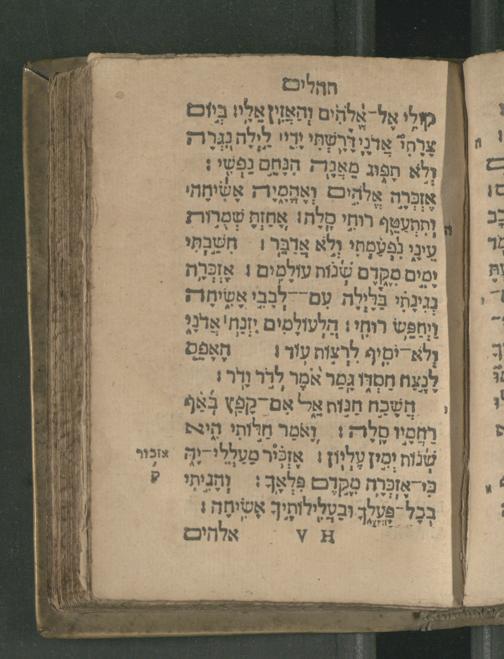 תהלים
קוֹלִי אֶל־אֱלֹהִים וְהַאֲזִין אֵלָי׃ בְּיוֹם
צָרָתִי אֲדֹנָי דָּרָשְׁתִּי יָדִי לַיְלָה נִגְּרָה
וְלֹא תָפוּג מֵאֲנָה הִנָּחֵם נַפְשִׁי׃
אֶזְכְּרָה אֱלֹהִים וְאֶהֱמָיָה אָשִׂיחָה
וְתִתְעַטֵּף רוּחִי סֶלָה׃ אָחַזְתָּ שְׁמֻרוֹת
עֵינָי נִפְעַמְתִּי וְלֹא אֲדַבֵּר׃ חִשַּׁבְתִּי
יָמִים מִקֶּדֶם שְׁנוֹת עוֹלָמִים׃ אֶזְכְּרָה
נְגִינָתִי בַּלָּיְלָה עִם־־לְבָבִי אָשִׂיחָה
וַיְחַפֵּשׂ רוּחִי׃ הַלְעוֹלָמִים יִזְנַח אֲדֹנָי
וְלֹא־יֹסִיף לִרְצוֹת עוֹד׃ הֶאָפֵס
לָנֶצַח חַסְדּוֹ גָּמַר אֹמֶר לְדֹר וָדֹר׃
הֲשָׁכַח חַנּוֹת אֵל אִם־קָפַץ בְּאַף
רַחֲמָיו סֶלָה׃ וָאֹמַר חַלּוֹתִי הִיא
שְׁנוֹת יְמִין עֶלְיוֹן׃ אֶזְכִּיר מַעַלְלֵי־יָהּ
אזכור
ק
כִּי־אֶזְכְּרָה מִקֶּדֶם פִּלְאֶךָ׃ וְהָגִיתִי
בְכָל־פָּעֳלֶךָ וּבַעֲלִילוֹתֶיךָ אָשִׂיחָה׃
H V אלהים